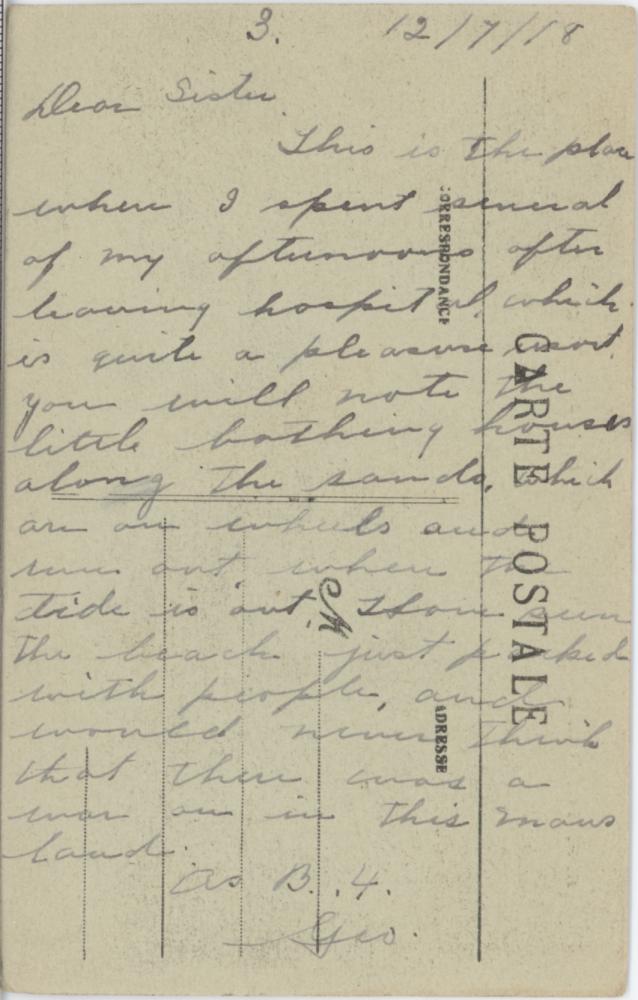 3. 12/7/18
Dear Sister
This is the place
where I spent several
of my afternoons after
leaving hospital, which
is quite a pleasure resort.
you will note the
little bathing houses
along the sands, which
are on wheels and
run out when the
tide is out. I have seen
the beach just packed
with people, and
would never think
that there was a
war on in this mans
land.
As B.4.
Geo.
CORRESPONDANCE
CARTE POSTALE
M
ADRESSE